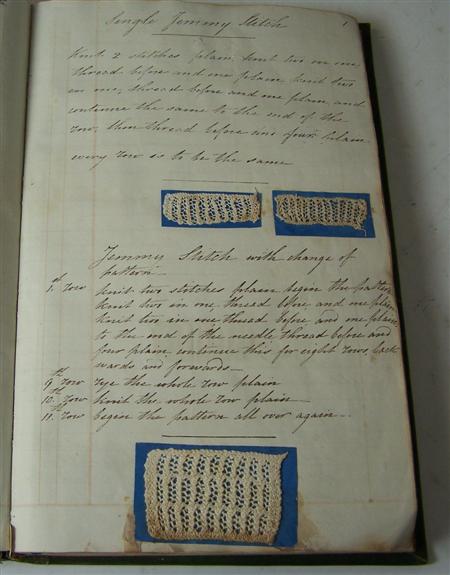 Single Jemmy Stitch
1
Knit 2 stitches plain, knit two in one,
thread before and one plain, knit two
in one, thread before and one plain, and
continue the same to the end of the
row, then thread before and four plain
every row is to be the same
Jemmy Stitch with change of
pattern
1.st row knit two stitches plain begin the pattern
knit two in one thread before and one plain
knit two in one thread before and one plain
to the end of the needle thread before and
four plain continue this for eight rows back
wards and forwards
9.th row the whole row plain
10.th row knit the whole row plain
11.th row begin the pattern all over again